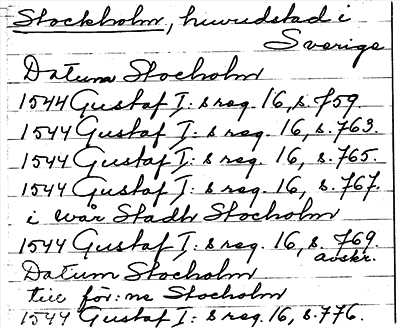 Stockholm, huvudstad i
Sverige
Datum Stocholm
1544 Gustaf I: s reg. 16, s. 759.
1544 Gustaf I: s reg. 16, s. 763.
1544 Gustaf I: s reg. 16, s. 765.
1544 Gustaf I: s reg. 16, s. 767.
i wår Stadh Stocholm
1544 Gustaf I: s reg. 16, s. 769.
avskr.
Datum Stocholm
till för: ne Stocholm
1544 Gustaf I: s reg. 16, s. 776.